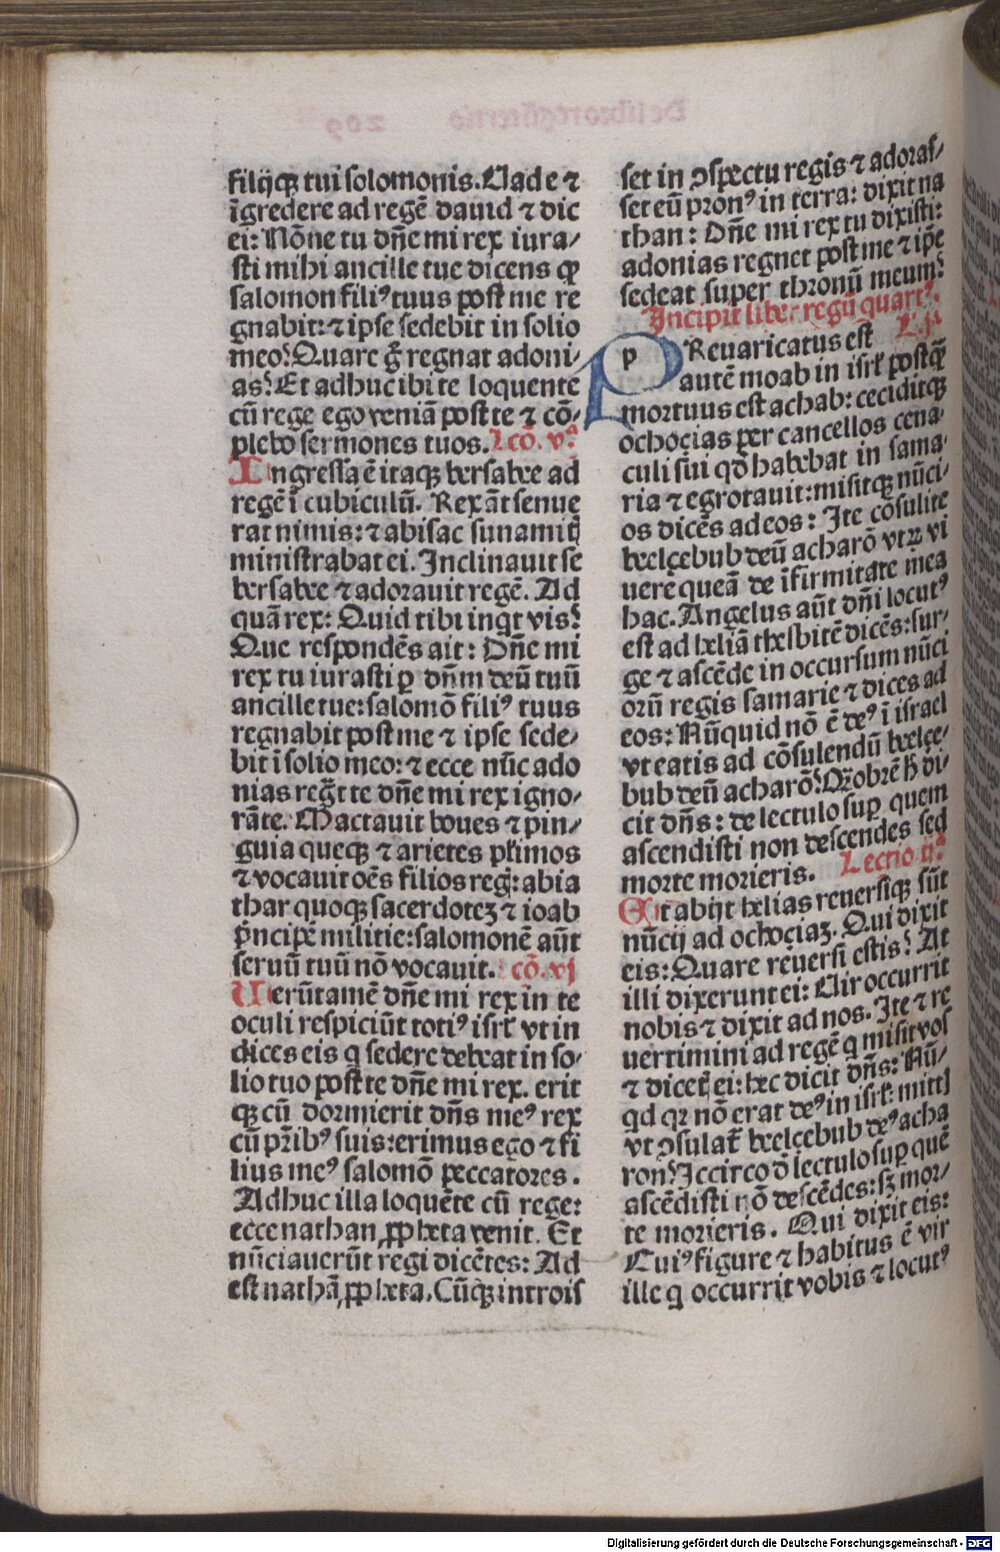 filijqꝫ tui solomonis. Uade ⁊
īgredere ad regē dauid ⁊ dic
ei: Nōne tu dn̄e mi rex iura/
sti mihi ancille tue dicens ꝙ
salomon filiꝰ tuus post me re
gnabit: ⁊ ipse sedebit in solio
meo? Quare g̃ regnat adoni/
as? Et adhuc ibi te loquente
cū rege ego veniā post te ⁊ cō/
plebo sermones tuos. Lcō. vᵃ
Ingressa ē itaqꝫ bersabee ad
regē ī cubiculū. Rex āt senue
rat nimis: ⁊ abisac sunamit
ministrabat ei. Inclinauit se
bersabee ⁊ adorauit regē. Ad
quā rex: Quid tibi inqt vis?
Que respondēs ait: Dn̄e mi
rex tu iurasti ꝑ dn̄m deū tuū
ancille tue: salomō filiꝰ tuus
regnabit post me ⁊ ipse sede/
bit ī solio meo: ⁊ ecce nūc ado
nias reg̃t te dn̄e mi rex igno/
rāte. Mactauit boues ⁊ pin/
guia queqꝫ ⁊ arietes pl̃imos
⁊ vocauit oēs filios reg̃: abia
thar quoqꝫ sacerdoteꝫ ⁊ ioab
p̄ncipē militie: salomonē aūt
seruū tuū nō vocauit. cō. vj
Uerūtamē dn̄e mi rex in te
oculi respiciūt totiꝰ isrl̃ vt in
dices eis q sedere debeat in so/
lio tuo post te dn̄e mi rex. erit
qꝫ cū dormierit dn̄s meꝰ rex
cū pr̄ibꝰ suis: erimus ego ⁊ fi
lius meꝰ salomō peccatores.
Adhuc illa loquēte cū rege:
ecce nathan ꝓpheta venit. Et
nūciauerūt regi dicētes: Ad
est nathā ꝓpheta. Cūqꝫ introis
set in ꝯspectu regis ⁊ adoras/
set eū pronꝰ in terra: dixit na
than: Dn̄e mi rex tu dixisti:
adonias regnet post me ⁊ ip̄e
sedeat super thronū meum?
Incipit liber regū quartꝰ.
L. jᵃ
PReuaricatus est
autē moab in isrl̃ postq̄
mortuus est achab: ceciditqꝫ
ochocias per cancellos cena/
culi sui qd̄ habebat in sama/
ria ⁊ egrotauit: misitqꝫ nūci/
os dicēs ad eos: Ite cōsulite
beelcebub deū acharō vtꝝ vi
uere queā de īfirmitate mea
hac. Angelus aūt dn̄i locutꝰ
est ad heliā thesbitē dicēs: sur/
ge ⁊ ascēde in occursum nūci
orū regis samarie ⁊ dices ad
eos: Nūquid nō ē deꝰ ī israel
vt eatis ad cōsulendū beelce/
bub deū acharō? Qꝫobrē h̄ di/
cit dn̄s: de lectulo suꝑ quem
ascendisti non descendes sed
morte morieris. Lectio ijᵃ
Et abijt helias reuersiqꝫ sūt
nūcij ad ochociaꝫ. Qui dixit
eis: Quare reuersi estis? At
illi dixerunt ei: Uir occurrit
nobis ⁊ dixit ad nos. Ite ⁊ re
uertimini ad regē q misit vos
⁊ dicet ei: hec dicit dn̄s: Nū/
qd qꝛ nō erat deꝰ in isrl̃: mitt
vt ꝯsulat̃ beelcebub deꝰ acha
ron? Iccirco d̄ lectulo suꝑ quē
ascēdisti nō descēdes: sꝫ mor/
te morieris. Qui dixit eis:
Cuiꝰ figure ⁊ habitus ē vir
ille q occurrit vobis ⁊ locutꝰ
Digitalisierung gefördert durch die Deutsche Forschungsgemeinschaft - DFG